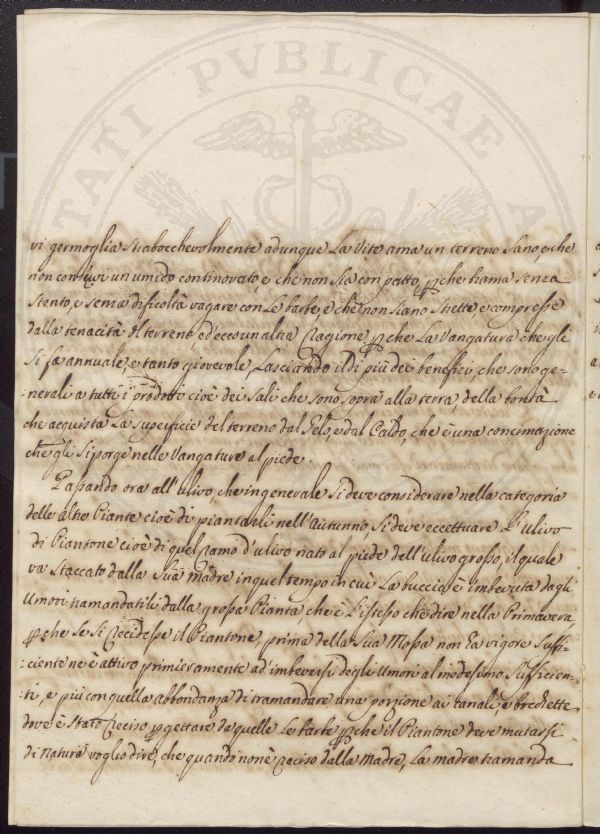 TATI PVBLICAE
vi germoglia strabocchevolmente adunque La Vite ama un terreno sano, e che
non conservi un umido continovato e che non sia compatto, p che brama senza
stento, e senza dificoltà vagare con Le barbe, e che non siano strette e compresse
dalla tenacità del terreno, ed ecco un altra ragione p che La Vangatura che gli
si fa annuale, e tanto giovevole, Lasciando il di più dei benefizi, che sono ge-
-nerali a tutti i prodotti cioè dei Sali che sono sopra alla terra, della bontà
che acquista La superficie del terreno dal Gelo, e dal Caldo, che è una concimazione
che gli si porge nelle Vangature al piede.
Passando ora all'ulivo, che in generale si deve considerare nella categoria
delle altre Piante cioè di piantarli nell'Autunno si deve eccettuare L'ulivo
di Piantone cioè di quel ramo d'ulivo nato al piede dell'ulivo grosso, il quale
va staccato dalla sua madre in quel tempo in cui La buccia è imbevita dagli
Umori tramandatili dalla grossa Pianta, che è L'istesso che dire nella Primavera,
p che se si recidesse il Piantone, prima della sua Mossa non ha vigore suffi-
-ciente ne è attivo primieramente ad'imbeversi degli Umori al medesimo sufficien-
-ti, e più con quella abbondanza di tramandare una porzione ai canali, e brechette
dove è stato reciso p gettare da quelle Le barbe p che il Piantone deve mutarsi
di natura voglio dire, che quando non è reciso dalla Madre, La madre tramanda